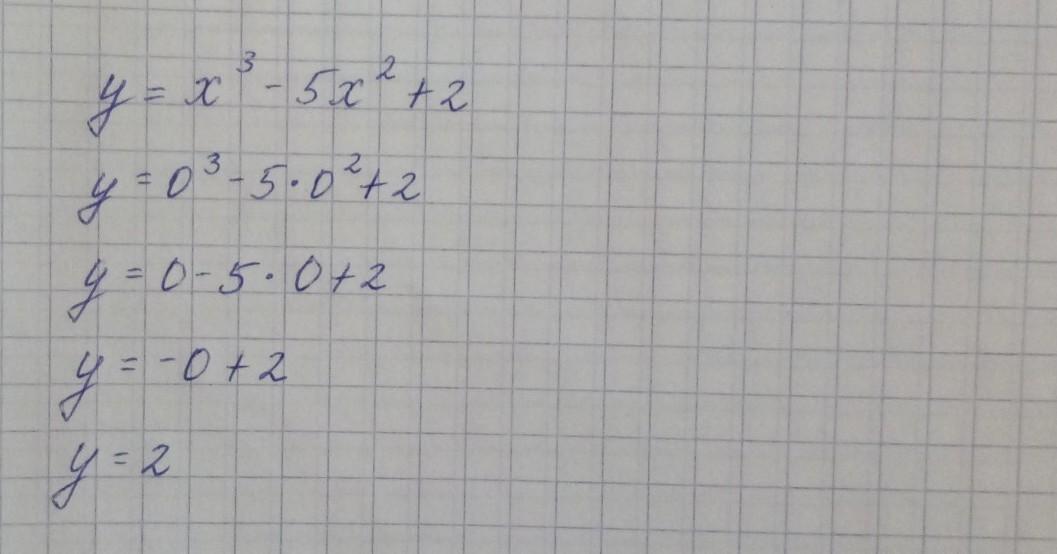 y = x³ - 5x² + 2
y = 0³ - 5 · 0² + 2
y = 0 - 5 · 0 + 2
y = -0 + 2
y = 2